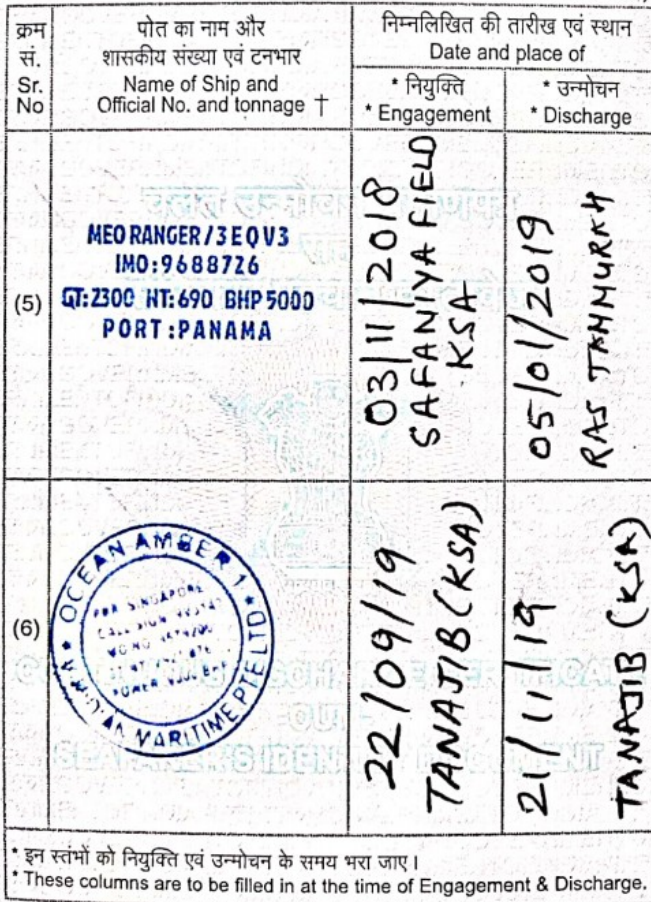 क्रम
सं.
Sr.
No
पोत का नाम और
शासकीय संख्या एवं टनभार
Name of Ship and
Official No. and tonnage †
निम्नलिखित की तारीख एवं स्थान
Date and place of
* नियुक्ति
* Engagement
* उन्मोचन
* Discharge
(5)
MEO RANGER/3EQV3
IMO:9688726
GT:2300 NT:690 BHP 5000
PORT:PANAMA
03/11/2018
SAFANIYA FIELD
KSA
05/01/2019
RAS TANNURAH
(6)
OCEAN AMBER 1
MARITIME PTE LTD
SINGAPORE
CALL SIGN
22/09/19
TANAJIB (KSA)
21/11/19
TANAJIB (KSA)
* इन स्तंभों को नियुक्ति एवं उन्मोचन के समय भरा जाए।
* These columns are to be filled in at the time of Engagement & Discharge.